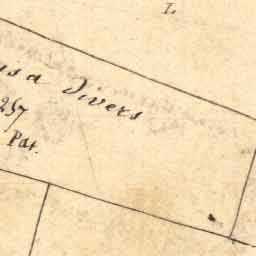 L
Divers
257
Pat.